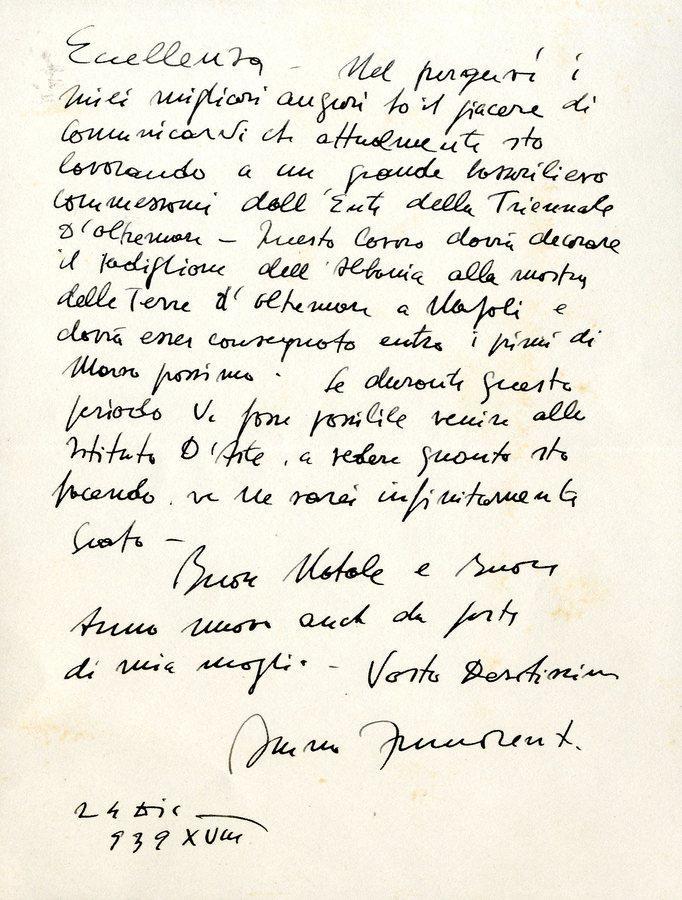 Eccellenza – Nel porgervi i
miei migliori auguri ho il piacere di
comunicarvi che attualmente sto
lavorando a un grande bassorilievo
commessomi dall'Ente della Triennale
D'oltremare – Questo lavoro dovrà decorare
il Padiglione dell'Albania alla mostra
delle Terre d'oltremare a Napoli e
dovrà esser consegnato entro i primi di
Marzo prossimo. Se durante questo
periodo Vi fosse possibile venire alle
Istituto D'Arte, a vedere quanto sto
facendo, ve ne sarei infinitamente
Grato –
Buon Natale e Buon
Anno nuovo anche da parte
di mia moglie. – Vostro Devotissimo
Bruno Innocenti.
24 Dic
939 XVIII